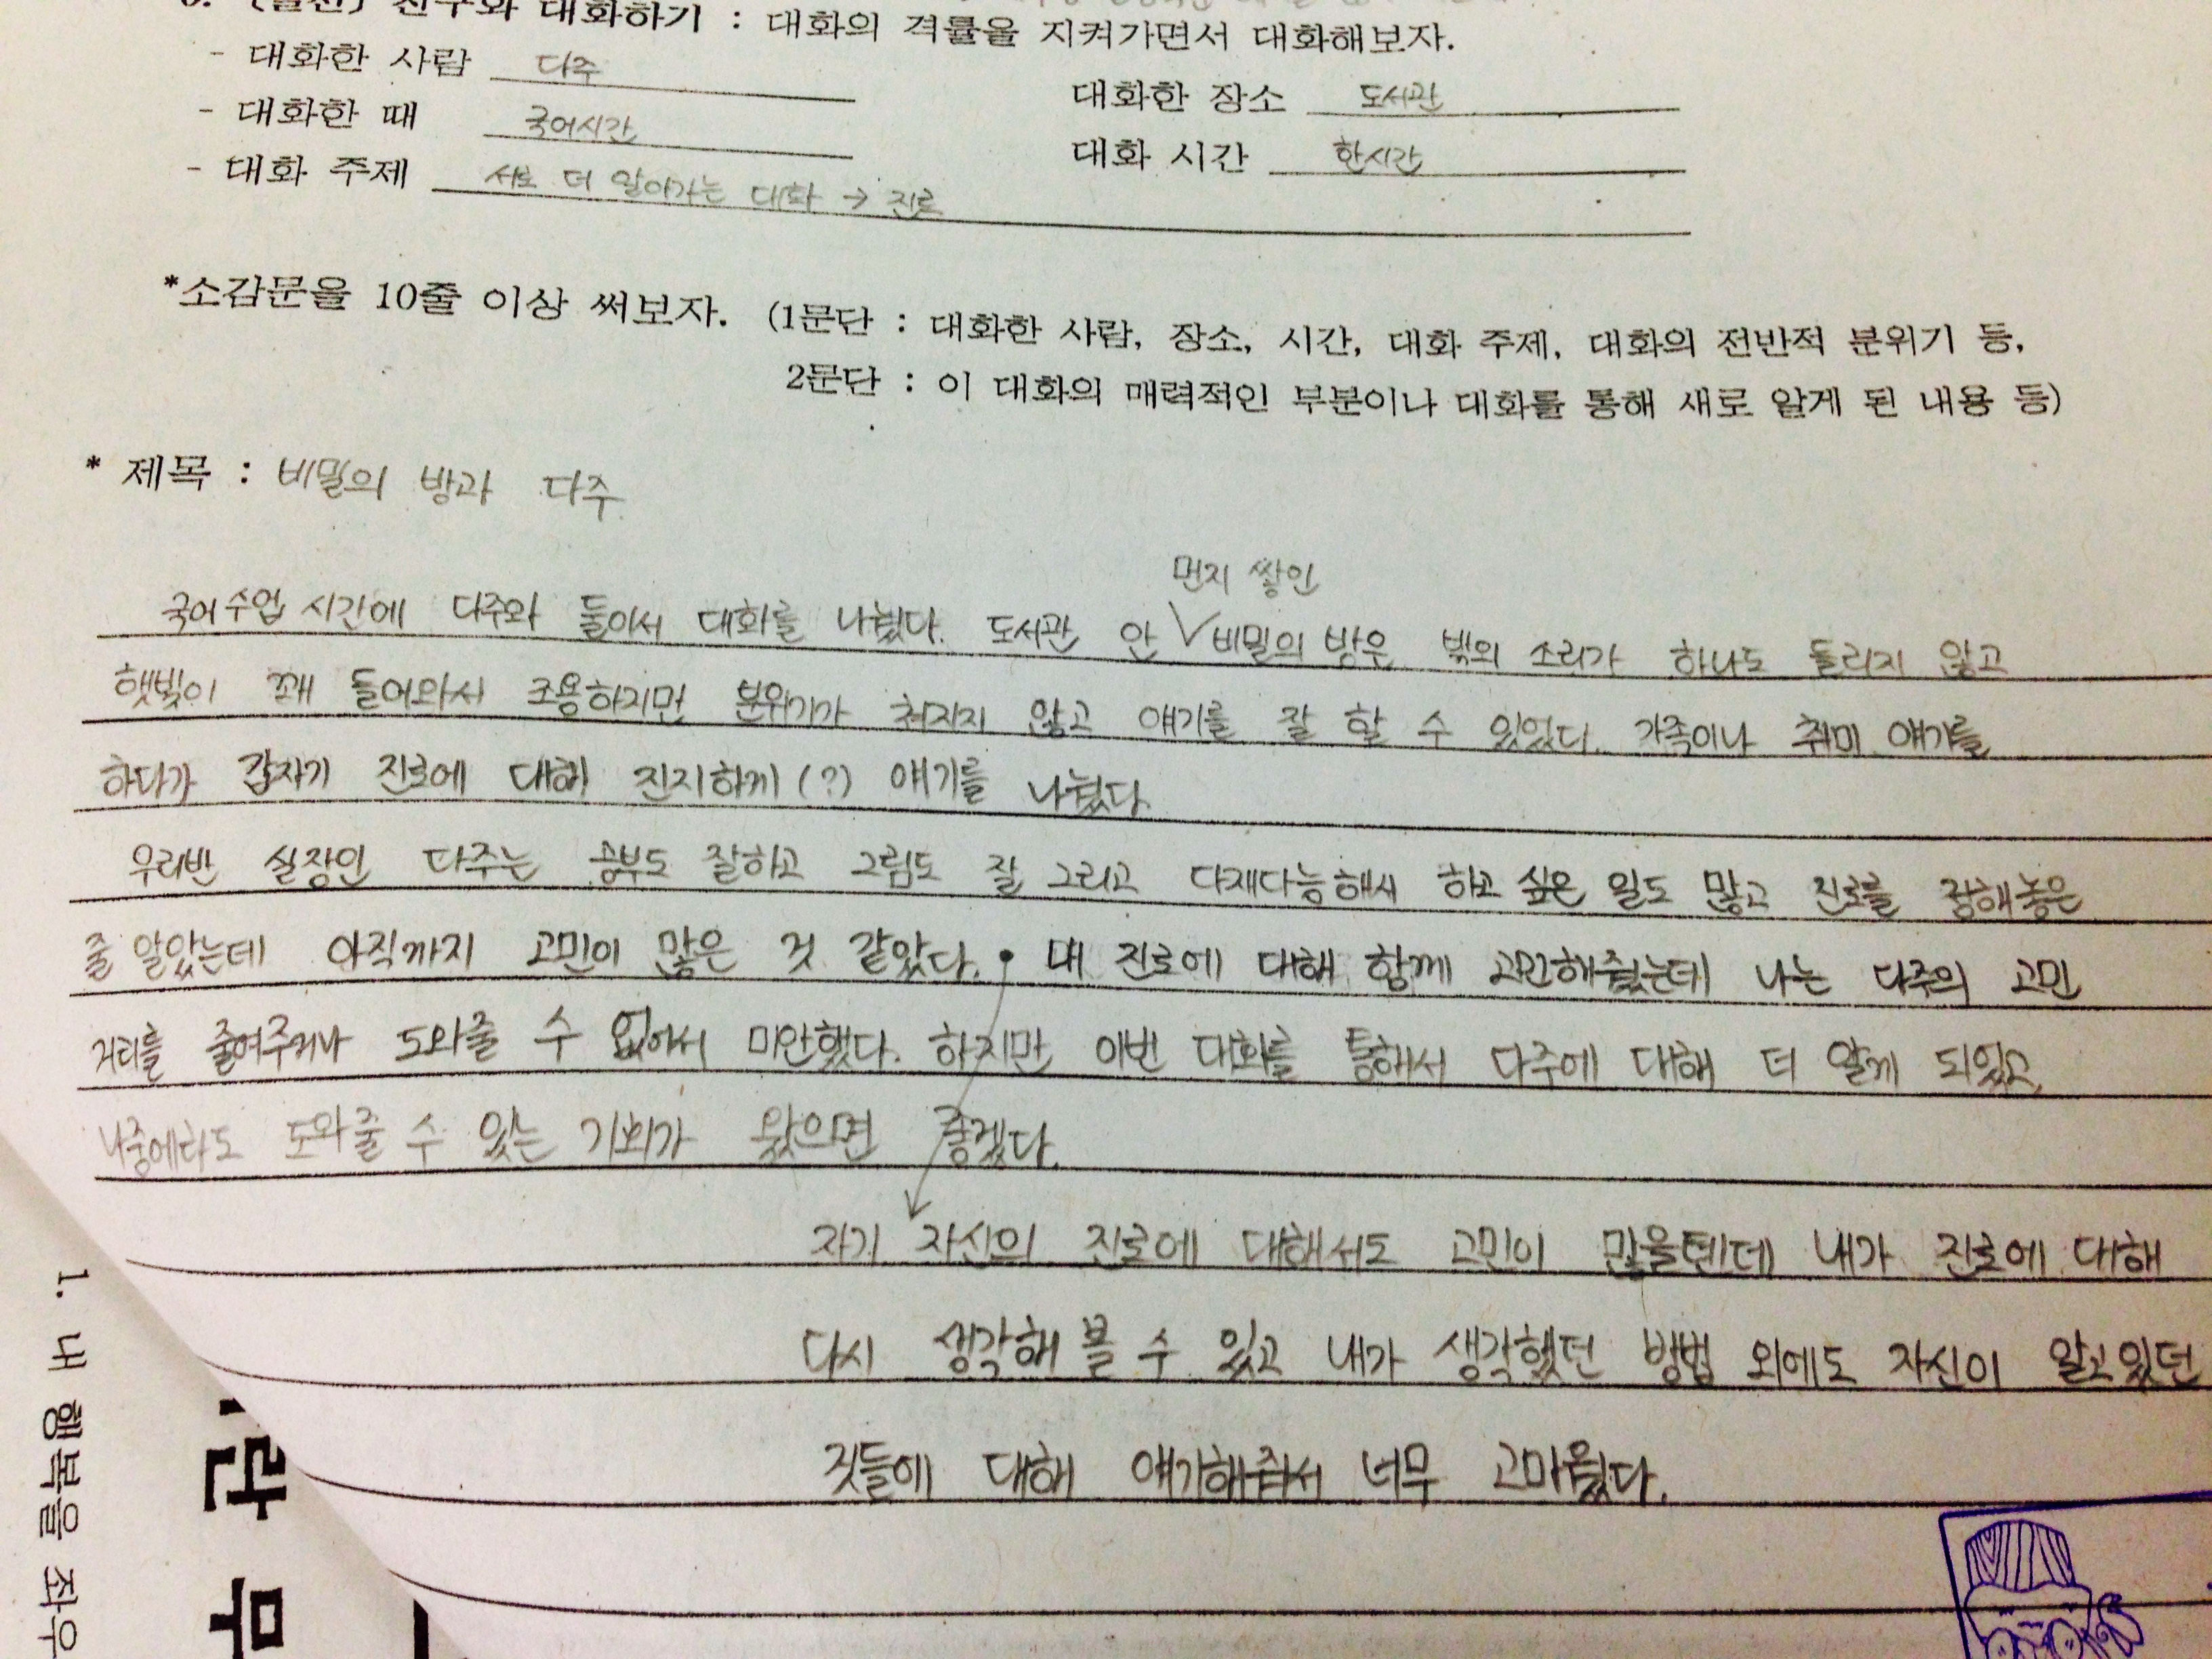 대화하기 : 대화의 격률을 지켜가면서 대화해보자.
- 대화한 사람 다주 대화한 장소 도서관
- 대화한 때 국어시간 대화 시간 한시간
- 대화 주제 서로 더 알아가는 대화 → 진로
*소감문을 10줄 이상 써보자. (1문단 : 대화한 사람, 장소, 시간, 대화 주제, 대화의 전반적 분위기 등,
2문단 : 이 대화의 매력적인 부분이나 대화를 통해 새로 알게 된 내용 등)
* 제목 : 비밀의 방과 다주
먼지 쌓인
국어수업 시간에 다주와 둘이서 대화를 나눴다. 도서관 안 V 비밀의 방은 밖의 소리가 하나도 들리지 않고
햇빛이 꽤 들어와서 조용하지먼 분위기가 쳐지지 않고 얘기를 잘 할 수 있었다. 가족이나 취미 얘기를
하다가 갑자기 진로에 대해 진지하게(?) 얘기를 나눴다.
우리반 실장인 다주는 공부도 잘하고 그림도 잘 그리고 다재다능해서 하고 싶은 일도 많고 진로를 정해놓은
줄 알았는데 아직까지 고민이 많은 것 같았다. 내 진로에 대해 함께 고민해줬는데 나는 다주의 고민
거리를 줄여주거나 도와줄 수 없어서 미안했다. 하지만 이번 대화를 통해서 다주에 대해 더 알게 되었고
나중에라도 도와줄 수 있는 기회가 왔으면 좋겠다.
자기 자신의 진로에 대해서도 고민이 많을텐데 내가 진로에 대해
다시 생각해 볼 수 있고 내가 생각했던 방법 외에도 자신이 알고있던
것들에 대해 얘기해줘서 너무 고마웠다.
1. 내 행복을 좌우
란 무